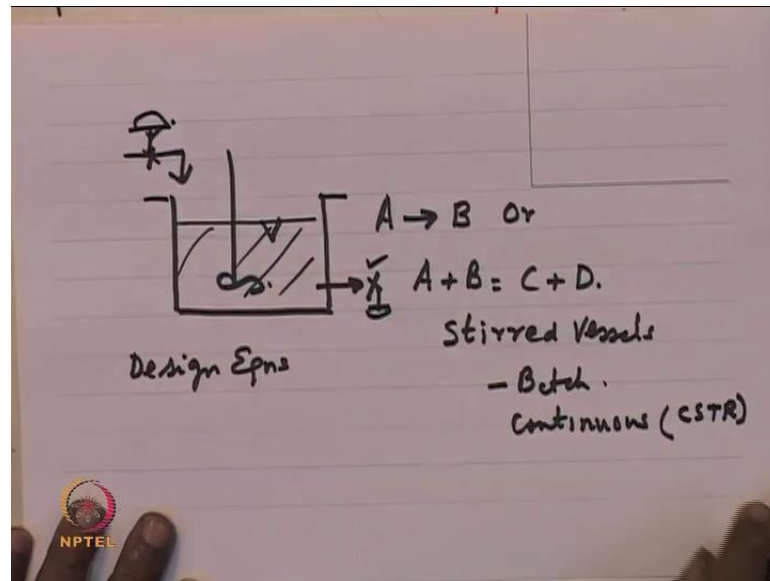 A → B Or
A + B = C + D.
Stirred Vessels
Design Eqns
- Batch.
Continuous (CSTR)
NPTEL